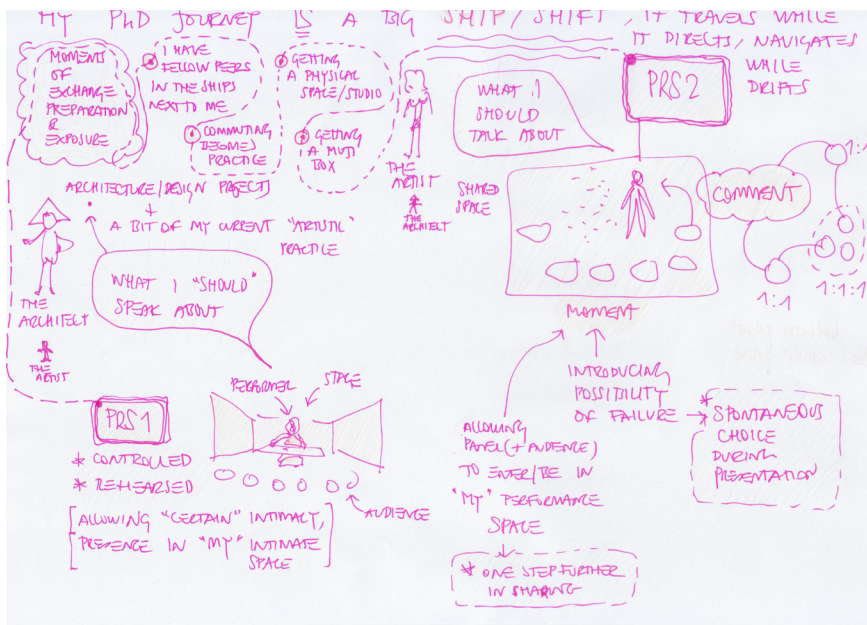 MY PhD JOURNEY IS A BIG SHIP/SHIFT, IT TRAVELS WHILE
IT DIRECTS/NAVIGATES
WHILE
DRIFTS
MOMENTS
OF
EXCHANGE
PREPARATION
&
EXPOSURE
I HAVE
FELLOW PEERS
IN THE SHIPS
NEXT TO ME
COMMUTING
BECOMES
PRACTICE
GETTING
A PHYSICAL
SPACE/STUDIO
GETTING
A MUJI
BOX
THE
ARTIST
THE
ARCHITECT
ARCHITECTURE/DESIGN PROJECTS
+
A BIT OF MY CURRENT "ARTISTIC"
PRACTICE
THE
ARCHITECT
THE
ARTIST
WHAT I "SHOULD"
SPEAK ABOUT
PRS1
* CONTROLLED
* REHEARSED
PERFORMER
STAGE
AUDIENCE
[ALLOWING "CERTAIN" INTIMACY,
PRESENCE IN "MY" INTIMATE
SPACE]
WHAT I
SHOULD
TALK ABOUT
PRS2
SHARED
SPACE
COMMENT
1:1
1:1
1:1:1
MOMENT
INTRODUCING
POSSIBILITY
OF FAILURE
* SPONTANEOUS
CHOICE
DURING
PRESENTATION
ALLOWING
PANEL (+ AUDIENCE)
TO ENTER/BE IN
"MY" PERFORMANCE
SPACE
* ONE STEP FURTHER
IN SHARING